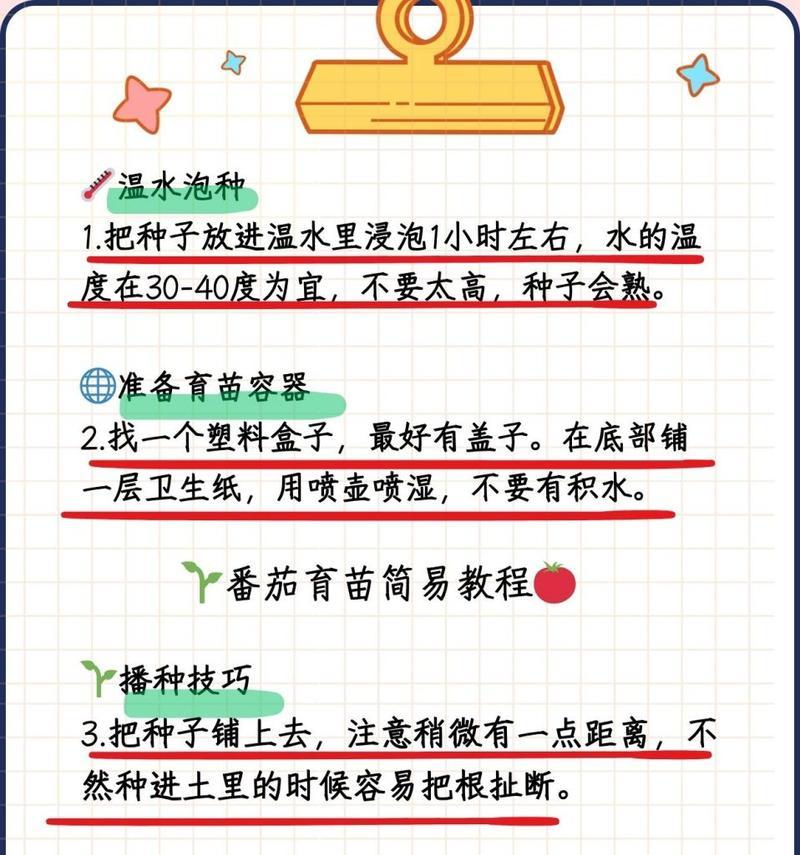 温水泡种
1.把种子放进温水里浸泡1小时左右，水的温
度在30-40度为宜，不要太高，种子会熟。
准备育苗容器
2.找一个塑料盒子，最好有盖子。在底部铺
一层卫生纸，用喷壶喷湿，不要有积水。
番茄育苗简易教程
播种技巧
3.把种子铺上去，注意稍微有一点距离，不
然种进土里的时候容易把根扯断。